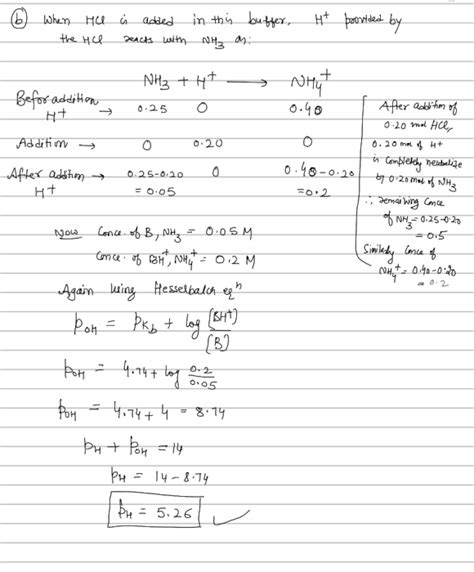 (b) When HCl is added in this buffer, H⁺ provided by
the HCl reacts with NH₃ as:
NH₃ + H⁺ → NH₄⁺
Before addition H⁺ → 0.25 0 0.40
Addition → 0 0.20 0
After addition H⁺ → 0.25-0.20 0 0.40-0.20
= 0.05 = 0.2
After addition of
0.20 mol HCl,
0.20 mol of H⁺
is completely neutralize
by 0.20 mol of NH₃
∴ remaining Conc
of NH₃ = 0.25-0.20
= 0.5
Similarly Conc of
NH₄⁺ = 0.40-0.20
= 0.2
Now Conc. of B, NH₃ = 0.05 M
Conc. of BH⁺, NH₄⁺ = 0.2 M
Again using Hesselbalch eqⁿ
pOH = pKb + log [BH⁺]/[B]
pOH = 4.74 + log 0.2/0.05
pOH = 4.74 + 4 = 8.74
pH + pOH = 14
pH = 14 - 8.74
pH = 5.26 ✓